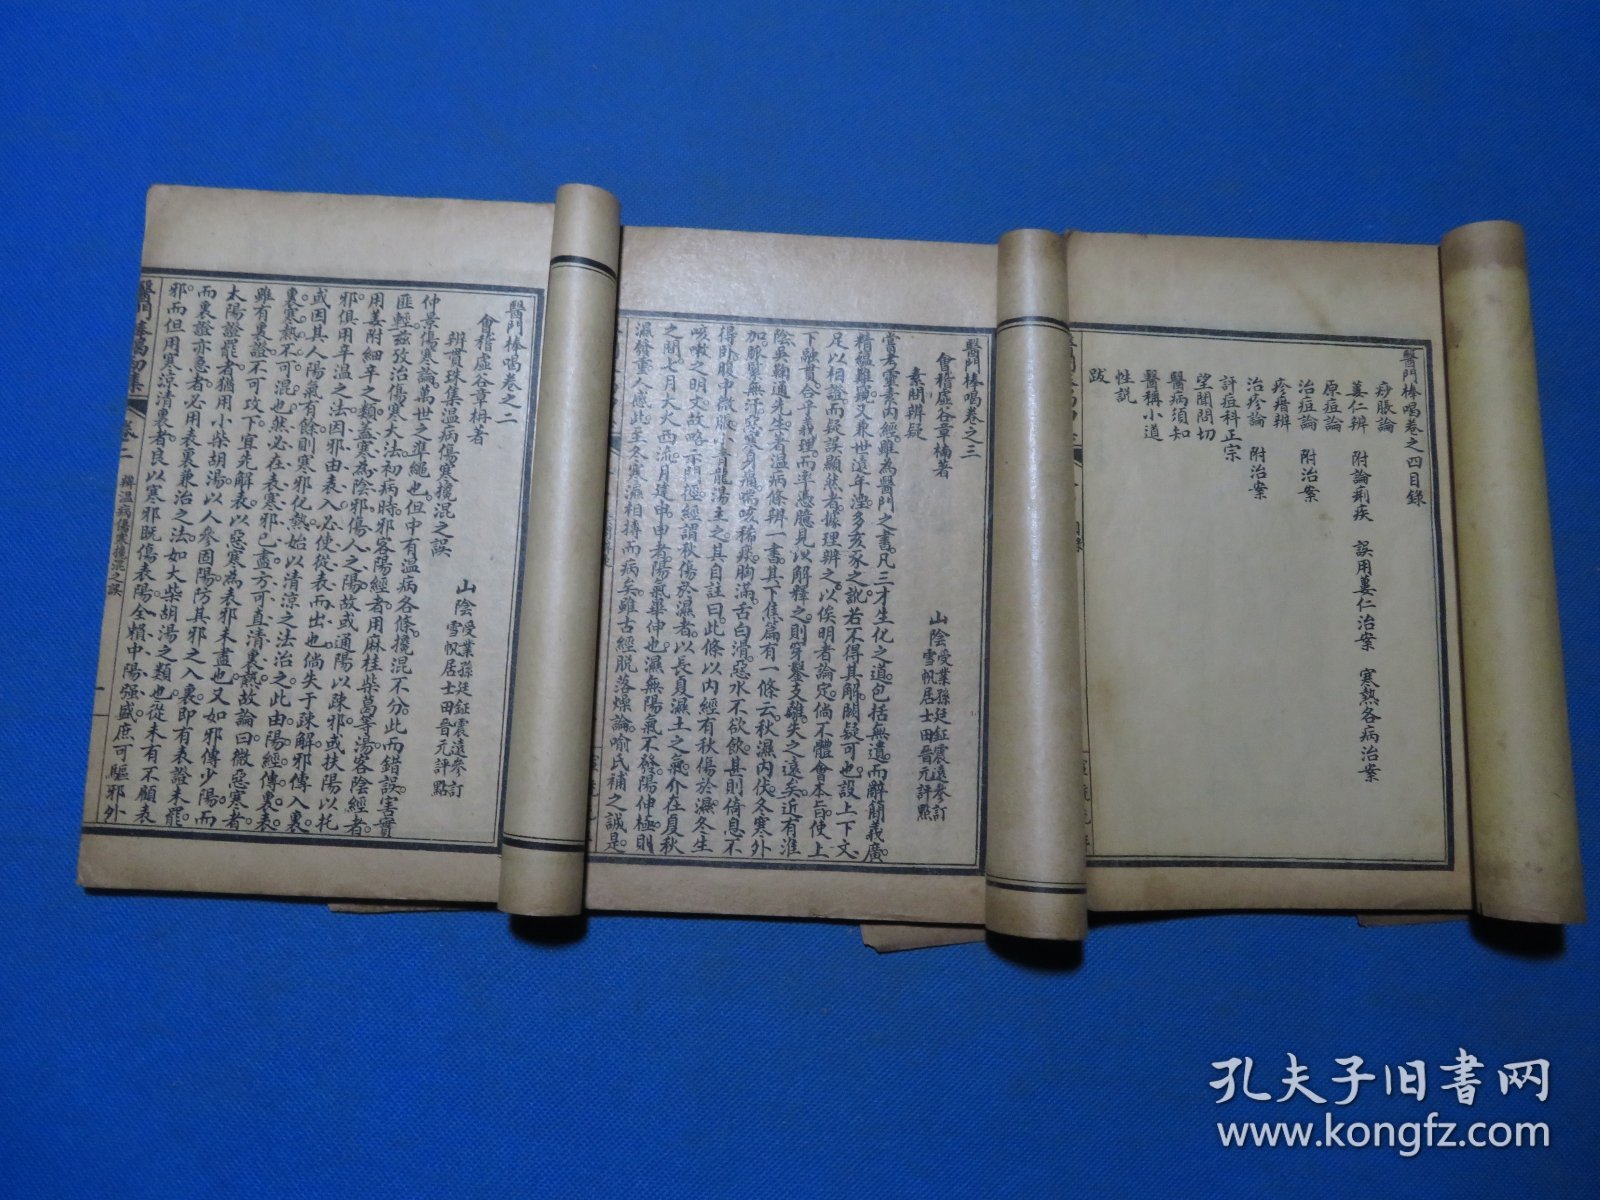 醫門棒喝卷之四目錄
痧脹論
蔞仁辨 附論痢疾 誤用蔞仁治案 寒熱各病治案
原痘論
治痘論 附治案
疹瘄辨
治疹論 附治案
評痘科正宗
望聞問切
醫病須知
醫稱小道
性説
跋
醫門棒喝卷之三
會稽虛谷章楠著
山陰受業孫廷鉦震遠參訂
雪帆居士田晉元評點
素問辨疑
嘗考靈素內經雖為醫門之書凡三才生化之道包括無遺而辭簡義廣
精蘊難瑧又兼世遠年湮多亥豕之訛若不得其解闕疑可也設上下文
足以相證而疑誤顯然者據理辨之以俟明者論定倘不體會本旨使上
下融貫合乎義理而率憑臆見以解釋之則穿鑿支離失之遠矣近有淮
陰吳鞠通先生著溫病條辨一書其下焦篇有一條云秋濕內伏冬寒外
加脈緊無汗惡寒身痛喘咳稀痰胸滿舌白滑惡水不欲飲甚則倚息不
得卧腹中微脹小青龍湯主之其自註曰此條以內經有秋傷於濕冬生
咳嗽之明文故略示門徑經謂秋傷於濕者以長夏濕土之氣介在夏秋
之間七月大火西流月建申申者陽氣畢伸也濕無陽氣不發陽伸極則
濕發重人感此至冬寒濕相搏而病矣雖古經脫落燥論喻氏補之誠是
醫門棒喝卷之二
會稽虛谷章楠著
山陰受業孫廷鉦震遠參訂
雪帆居士田晉元評點
辨貫珠集溫病傷寒攙混之誤
仲景傷寒論萬世之準繩也但中有溫病各條攙混不分此而錯誤害實
匪輕茲攷治傷寒大法初病時邪客陽經者用麻桂柴葛等湯客陰經者
用姜附細辛之類蓋寒為陰邪傷人之陽故或通陽以疎邪或扶陽以托
邪俱用辛溫之法因邪由表入必使從表而出也倘失于疎解邪傳入裏
或因其人陽氣有餘則寒邪化熱始以清涼之法治之此由陽經傳裏表
裏寒熱不可混也然必在表寒邪已盡方可直清裏熱故論曰微惡寒者
雖有裏證不可攻下宜先解表以惡寒為表邪未盡也又如邪傳少陽而
太陽證罷者猶用小柴胡湯以人參固陽防其邪之入裏即有表證未罷
而裏證亦急者必用表裏兼治之法如大柴胡湯之類也從未有不顧表
邪而但用寒涼清裏者良以寒邪既傷表陽全賴中陽強盛庶可驅邪外
醫門棒喝初集
卷二
辨溫病傷寒攙混之誤
一
孔夫子旧书网
www.kongfz.com